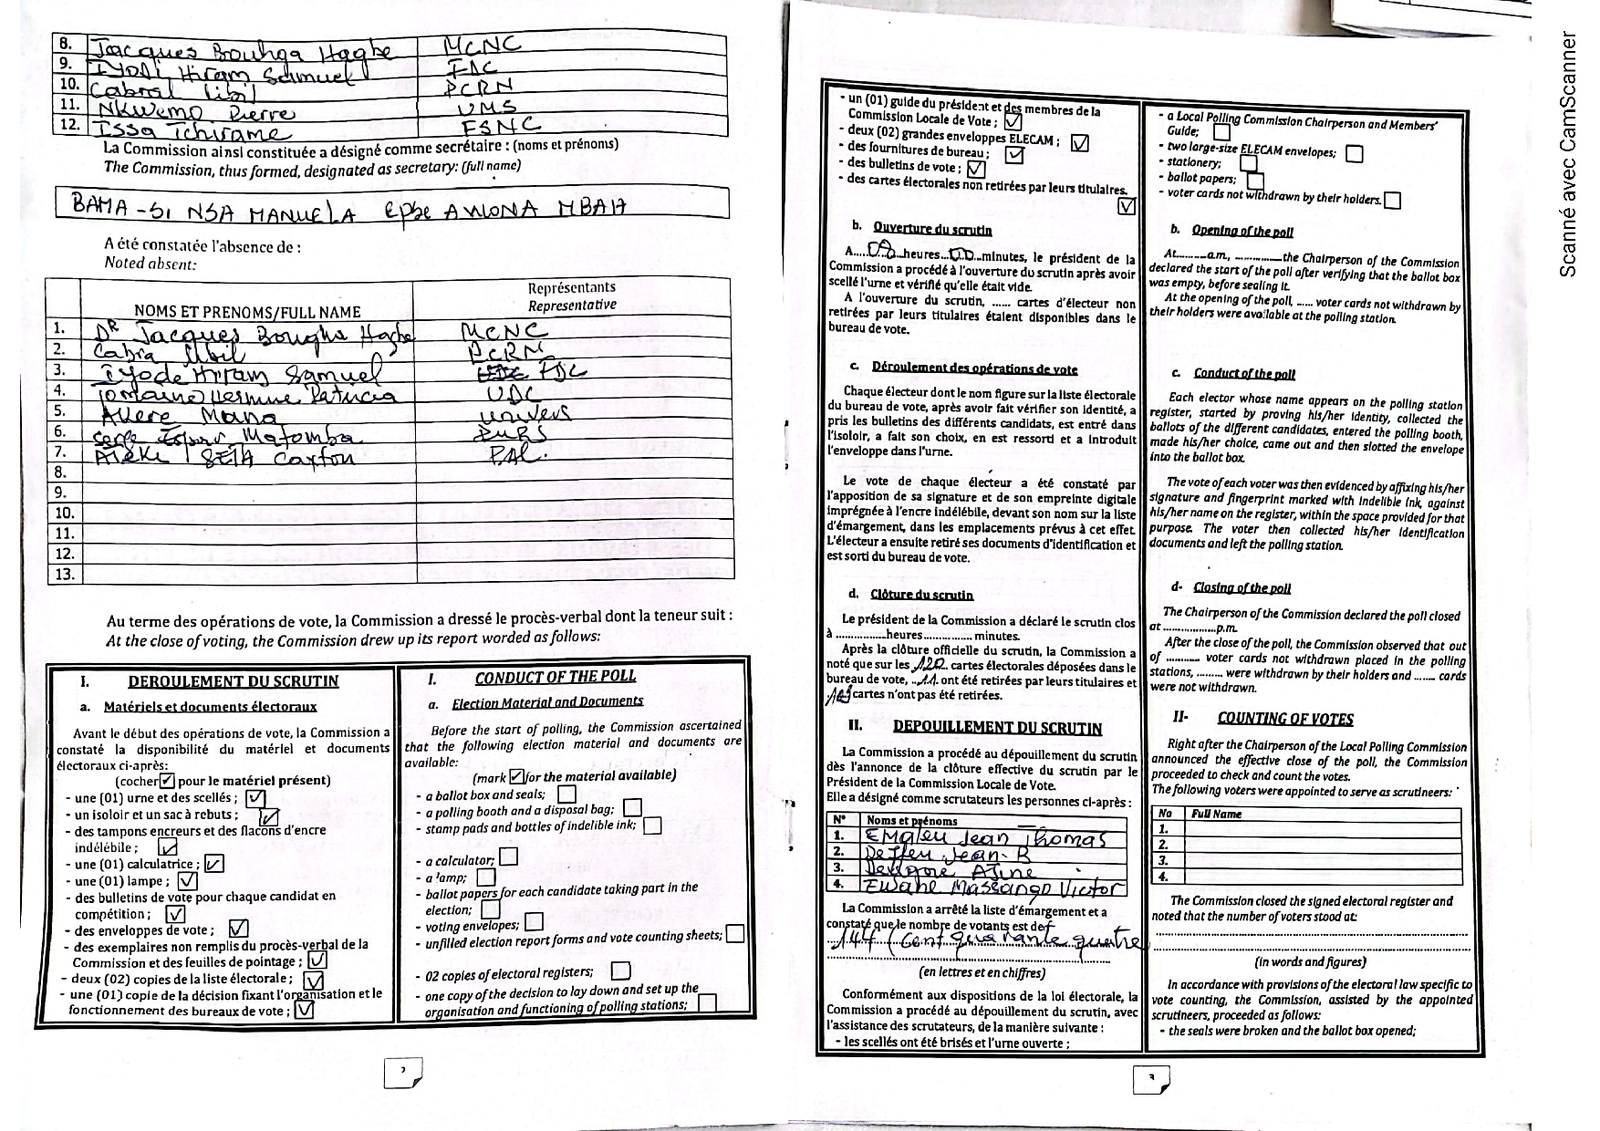 8. Jacques Bouhga Hagbe MCNC
9. Iyodi Hiram Samuel FDC
10. Cabral Libii PCRN
11. Nkwemo Pierre UMS
12. Issa Tchirame FSNC
La Commission ainsi constituée a désigné comme secrétaire : (noms et prénoms)
The Commission, thus formed, designated as secretary: (full name)
BAMA-SI NSA MANUELA Epse AWONA MBAH
A été constatée l'absence de :
Noted absent:
NOMS ET PRENOMS/FULL NAME
Représentants
Representative
1. Dr Jacques Bougha Hagbe MCNC
2. Cabra Libil PCRN
3. Iyode Hiram Samuel FDC
4. Tomaino Hermine Patricia UDC
5. Akere Muna Univers
6. Serge Espoir Matomba PURS
7. Ateki SETA Caxton PAL.
8.
9.
10.
11.
12.
13.
Au terme des opérations de vote, la Commission a dressé le procès-verbal dont la teneur suit :
At the close of voting, the Commission drew up its report worded as follows:
I. DEROULEMENT DU SCRUTIN
a. Matériels et documents électoraux
Avant le début des opérations de vote, la Commission a
constaté la disponibilité du matériel et documents
électoraux ci-après:
(cocher ☑ pour le matériel présent)
- une (01) urne et des scellés ; ☑
- un isoloir et un sac à rebuts ; ☑
- des tampons encreurs et des flacons d'encre
indélébile ; ☑
- une (01) calculatrice ; ☑
- une (01) lampe ; ☑
- des bulletins de vote pour chaque candidat en
compétition ; ☑
- des enveloppes de vote ; ☑
- des exemplaires non remplis du procès-verbal de la
Commission et des feuilles de pointage ; ☑
- deux (02) copies de la liste électorale ; ☑
- une (01) copie de la décision fixant l'organisation et le
fonctionnement des bureaux de vote ; ☑
I. CONDUCT OF THE POLL
a. Election Material and Documents
Before the start of polling, the Commission ascertained
that the following election material and documents are
available:
(mark ☑ for the material available)
- a ballot box and seals; ☐
- a polling booth and a disposal bag; ☐
- stamp pads and bottles of indelible ink; ☐
- a calculator; ☐
- a lamp; ☐
- ballot papers for each candidate taking part in the
election; ☐
- voting envelopes; ☐
- unfilled election report forms and vote counting sheets; ☐
- 02 copies of electoral registers; ☐
- one copy of the decision to lay down and set up the
organisation and functioning of polling stations; ☐
- un (01) guide du président et des membres de la
Commission Locale de Vote ; ☑
- deux (02) grandes enveloppes ELECAM ; ☑
- des fournitures de bureau ; ☑
- des bulletins de vote ; ☑
- des cartes électorales non retirées par leurs titulaires.
☑
b. Ouverture du scrutin
A.....08..heures..00..minutes, le président de la
Commission a procédé à l'ouverture du scrutin après avoir
scellé l'urne et vérifié qu'elle était vide.
A l'ouverture du scrutin, ...... cartes d'électeur non
retirées par leurs titulaires étaient disponibles dans le
bureau de vote.
c. Déroulement des opérations de vote
Chaque électeur dont le nom figure sur la liste électorale
du bureau de vote, après avoir fait vérifier son identité, a
pris les bulletins des différents candidats, est entré dans
l'isoloir, a fait son choix, en est ressorti et a introduit
l'enveloppe dans l'urne.
Le vote de chaque électeur a été constaté par
l'apposition de sa signature et de son empreinte digitale
imprégnée à l'encre indélébile, devant son nom sur la liste
d'émargement, dans les emplacements prévus à cet effet.
L'électeur a ensuite retiré ses documents d'identification et
est sorti du bureau de vote.
d. Clôture du scrutin
Le président de la Commission a déclaré le scrutin clos
à ...............heures............... minutes.
Après la clôture officielle du scrutin, la Commission a
noté que sur les 120 cartes électorales déposées dans le
bureau de vote, ..11. ont été retirées par leurs titulaires et
109 cartes n'ont pas été retirées.
II. DEPOUILLEMENT DU SCRUTIN
La Commission a procédé au dépouillement du scrutin
dès l'annonce de la clôture effective du scrutin par le
Président de la Commission Locale de Vote.
Elle a désigné comme scrutateurs les personnes ci-après :
N° Noms et prénoms
1. Jean Thomas
2. Jean. B
3.
4. Ewane Massango Victor
La Commission a arrêté la liste d'émargement et a
constaté que le nombre de votants est de
144 (Cent quarante quatre
(en lettres et en chiffres)
Conformément aux dispositions de la loi électorale, la
Commission a procédé au dépouillement du scrutin, avec
l'assistance des scrutateurs, de la manière suivante :
- les scellés ont été brisés et l'urne ouverte ;
- a Local Polling Commission Chairperson and Members'
Guide; ☐
- two large-size ELECAM envelopes; ☐
- stationery; ☐
- ballot papers; ☐
- voter cards not withdrawn by their holders. ☐
b. Opening of the poll
At.........a.m, ..............the Chairperson of the Commission
declared the start of the poll after verifying that the ballot box
was empty, before sealing it.
At the opening of the poll, ...... voter cards not withdrawn by
their holders were available at the polling station.
c. Conduct of the poll
Each elector whose name appears on the polling station
register, started by proving his/her identity, collected the
ballots of the different candidates, entered the polling booth,
made his/her choice, came out and then slotted the envelope
into the ballot box.
The vote of each voter was then evidenced by affixing his/her
signature and fingerprint marked with indelible ink, against
his/her name on the register, within the space provided for that
purpose. The voter then collected his/her identification
documents and left the polling station.
d- Closing of the poll
The Chairperson of the Commission declared the poll closed
at ..................p.m.
After the close of the poll, the Commission observed that out
of ........... voter cards not withdrawn placed in the polling
stations, ......... were withdrawn by their holders and ....... cards
were not withdrawn.
II- COUNTING OF VOTES
Right after the Chairperson of the Local Polling Commission
announced the effective close of the poll, the Commission
proceeded to check and count the votes.
The following voters were appointed to serve as scrutineers:
No Full Name
1.
2.
3.
4.
The Commission closed the signed electoral register and
noted that the number of voters stood at:
(in words and figures)
In accordance with provisions of the electoral law specific to
vote counting, the Commission, assisted by the appointed
scrutineers, proceeded as follows:
- the seals were broken and the ballot box opened;
Scanné avec CamScanner